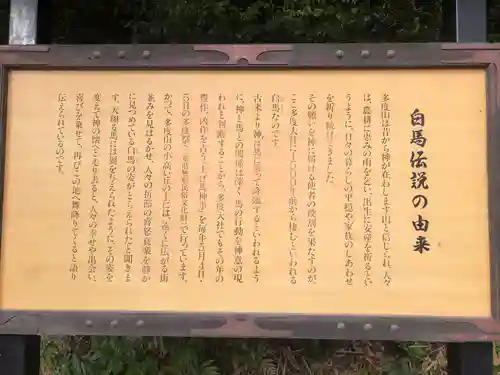 白馬伝説の由来
多度山は昔から神が在わします山と信じられ、人々
は、農耕に恵みの雨を乞い、出生に安産を祈るとい
うように、日々の暮らしの平穏や家族のしあわせ
を祈り続けてきました。
その願いを神に届ける使者の役割を果たすのが、
ここ多度大社に1500年前から棲むといわれる
白馬なのです。
古来より神は馬に乗って降臨するといわれるよう
に、神と馬との関係は深く、馬の行動を神意の現
われと判断することから、多度大社でもその年の
豊作、凶作を占う「上げ馬神事」を毎年5月4日・
5日の多度祭(三重県無形民俗文化財)で行っています。
かつて、多度山の小高い丘の上には、遙々広がる街
並みを見はるかせ、人々の折節の喜怒哀楽を静か
に見つめている白馬の姿がとらえられたと聞きま
す。天翔る馬には翼を与えられたように、その姿を
変えて神の懐へと走り去ると、人々の幸せや出会い、
喜びを乗せて、再びこの地へ舞降りてくると語り
伝えられているのです。